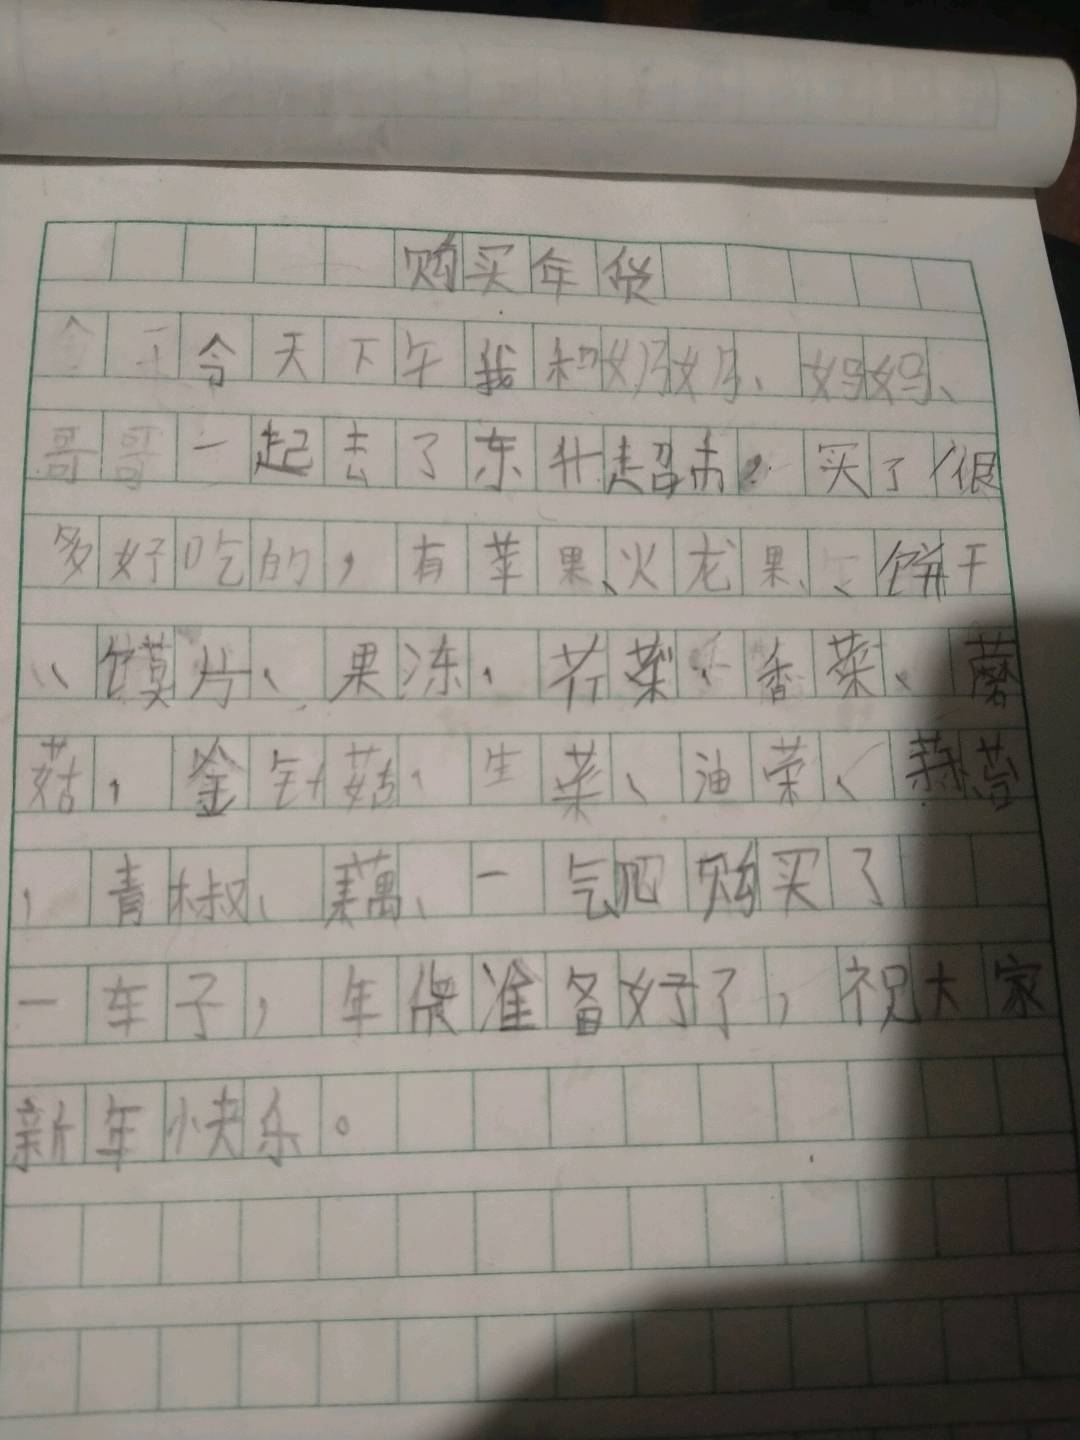 购买年货
今天下午我和奶奶、妈妈、
哥哥一起去了东升超市。买了很
多好吃的，有苹果、火龙果、饼干
、馍片、果冻、芥菜、香菜、蘑
菇，金针菇、生菜、油菜、蒜苔
，青椒、藕、一气吧购买了
一车子，年货准备好了，祝大家
新年快乐。